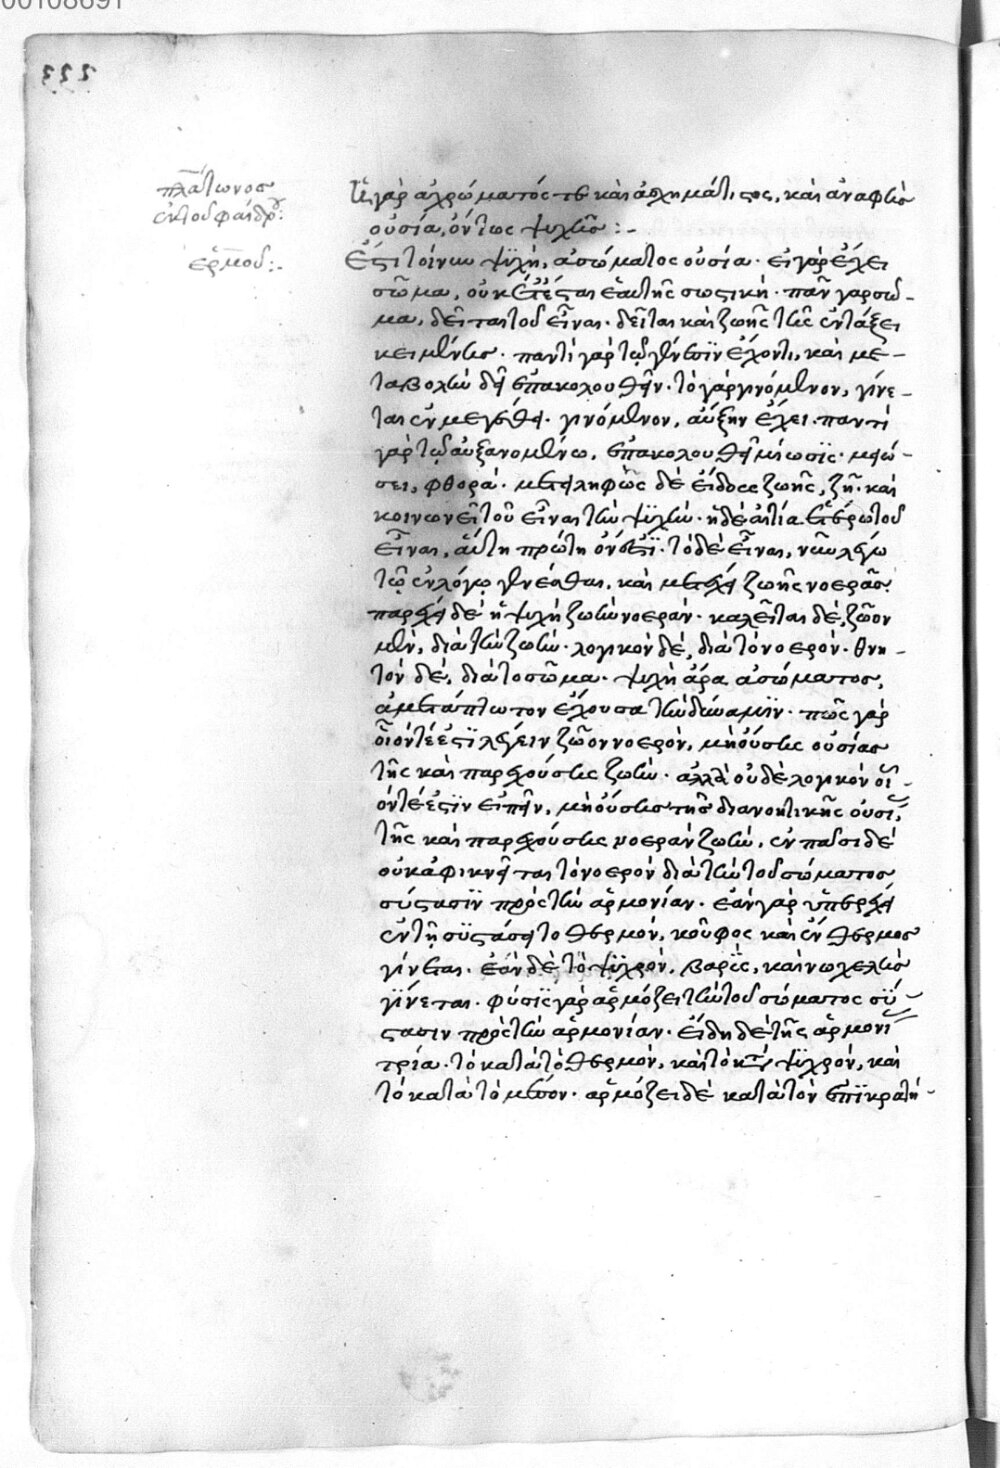 00108691
πλάτωνος
ἐκ τοῦ φαίδρου:
ἑρμοῦ:-
Ἡ γὰρ ἀχρώματός τε καὶ ἀσχημάτιστος, καὶ ἀναφὴς
οὐσία, ὄντως ψυχῆς:-
Ἔστι τοίνυν ψυχὴ, ἀσώματος οὐσία· εἰ γὰρ ἔχει
σῶμα, οὐκέτι ἔσται ἑαυτῆς σωστική· πᾶν γὰρ σῶ-
μα, δεῖται τοῦ εἶναι· δεῖται καὶ ζωῆς τῆς ἐν τάξει
κειμένης· παντὶ γὰρ τῷ γένεσιν ἔχοντι, καὶ με-
ταβολὴν δεῖ ἐπακολουθεῖν· τὸ γὰρ γινόμενον, γίνε-
ται ἐν μεγέθει· γινόμενον, αὔξην ἔχει· παντὶ
γὰρ τῷ αὐξανομένῳ, ἐπακολουθεῖ μείωσις· μειώ-
σει, φθορά· μετειληφὼς δὲ εἴδους ζωῆς, ζῇ· καὶ
κοινωνεῖ τοῦ εἶναι τὴν ψυχήν· ἡ δὲ αἰτία ἑτέρῳ τοῦ
εἶναι, αὐτὴ πρώτη ὄν ἐστι· τὸ δὲ εἶναι, νῦν λέγω
τῷ ἐν λόγῳ γενέσθαι, καὶ μετέχει ζωῆς νοερᾶς·
παρέχει δὲ ἡ ψυχὴ ζωὴν νοεράν· καλεῖται δὲ, ζῶον
μὲν, διὰ τὴν ζωήν· λογικὸν δέ, διὰ τὸ νοερόν· θνη-
τὸν δέ, διὰ τὸ σῶμα· ψυχὴ ἄρα ἀσώματος,
ἀμετάπτωτον ἔχουσα τὴν δύναμιν· πῶς γὰρ
οἷόν τέ ἐστι λέγειν ζῶον νοερὸν, μὴ οὔσης οὐσίας
τῆς καὶ παρεχούσης ζωήν· ἀλλὰ οὐδὲ λογικὸν οἷ-
όν τέ ἐστιν εἰπεῖν, μὴ οὔσης τῆς διανοητικῆς οὐσί
τῆς καὶ παρεχούσης νοερὰν ζωήν, ἐν πᾶσι δὲ
οὐκ ἀφικνεῖται τὸ νοερὸν διὰ τὴν τοῦ σώματος
σύστασιν πρὸς τὴν ἁρμονίαν· ἐὰν γὰρ ὑπερέχῃ
ἐν τῇ συστάσει τὸ θερμόν, κοῦφος καὶ ἔνθερμος
γίνεται· ἐὰν δὲ τὸ ψυχρόν, βαρὺς, καὶ νωχελὴς
γίνεται· φύσις γὰρ ἁρμόζει τὴν τοῦ σώματος σύ
στασιν πρὸς τὴν ἁρμονίαν· εἴδη δὲ τῆς ἁρμονί
τρία· τὸ κατὰ τὸ θερμόν, καὶ τὸ κατὰ τὸ ψυχρόν, καὶ
τὸ κατὰ τὸ μέσον· ἁρμόζει δὲ κατὰ τὸν ἐπικρατή-